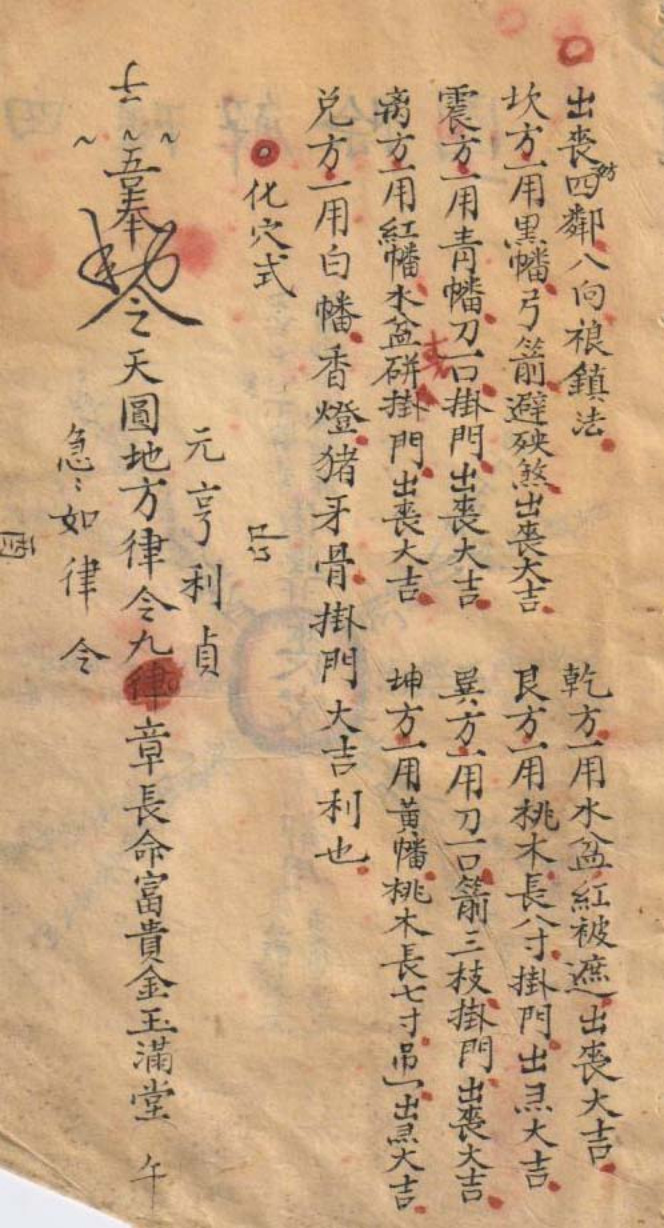 出喪四鄰八向禳鎮法
坎方一用黑幡弓箭避殃煞出喪大吉
乾方一用水盆紅被遮出喪大吉
震方一用青幡刀一口掛門出喪大吉
艮方一用桃木長八寸掛門出喪大吉
离方一用紅幡水盆硑掛門出喪大吉
巽方一用刀一口箭三枝掛門出喪大吉
兑方一用白幡香燈猪牙骨掛門大吉利也
坤方一用黃幡桃木長七寸吊一出喪大吉
化穴式
元亨利貞
奉
令天圓地方律令九章長命富貴金玉滿堂 午
急〻如律令